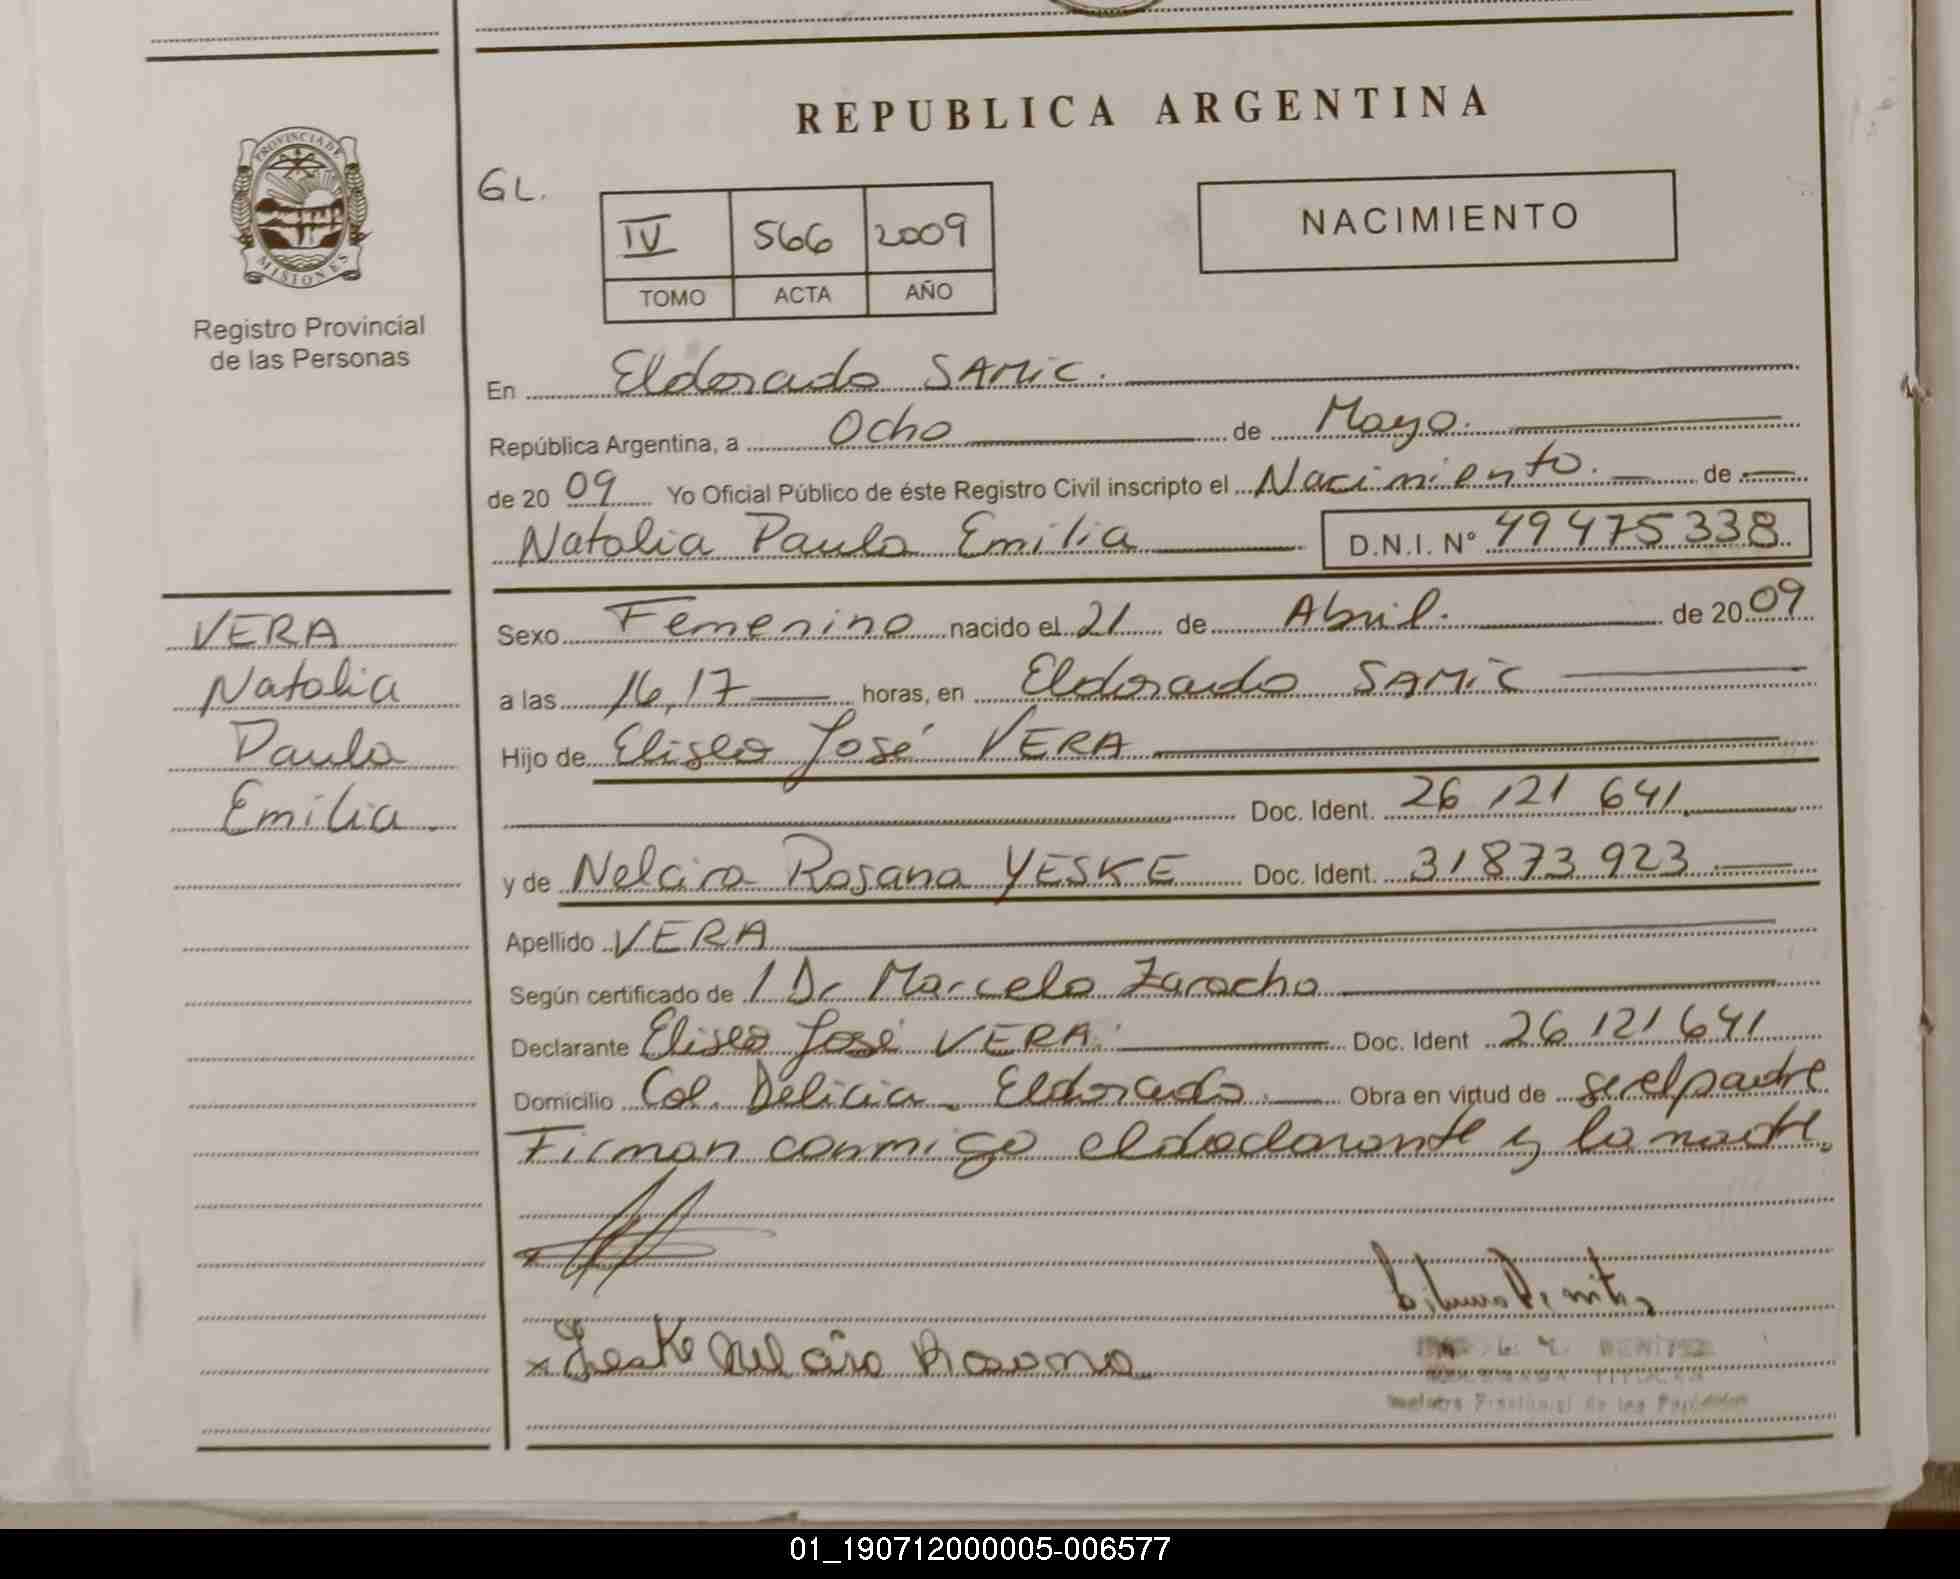 REPUBLICA ARGENTINA
PROVINCIA DE
MISIONES
Registro Provincial
de las Personas
GL.
IV 566 2009
TOMO ACTA AÑO
NACIMIENTO
En Eldorado SAMIC.
República Argentina, a Ocho de Mayo.
de 20 09 Yo Oficial Público de éste Registro Civil inscripto el Nacimiento. de
Natalia Paula Emilia D.N.I. N° 49475338
VERA
Natalia
Paula
Emilia.
Sexo Femenino nacido el 21 de Abril. de 20 09
a las 16,17 horas, en Eldorado SAMIC
Hijo de Eliseo José VERA
Doc. Ident. 26 121 641
y de Nelcira Rosana YESKE Doc. Ident. 31 873 923
Apellido VERA
Según certificado de 1 Dr Marcelo Zaracho
Declarante Eliseo José VERA. Doc. Ident 26 121 641
Domicilio Col. Delicia - Eldorado. Obra en virtud de ser el padre
Firman conmigo el declarante y la madre.
x Yeske Nelcira Rosana
BENITEZ
TITULAR
Registro Provincial de las Personas
01_190712000005-006577